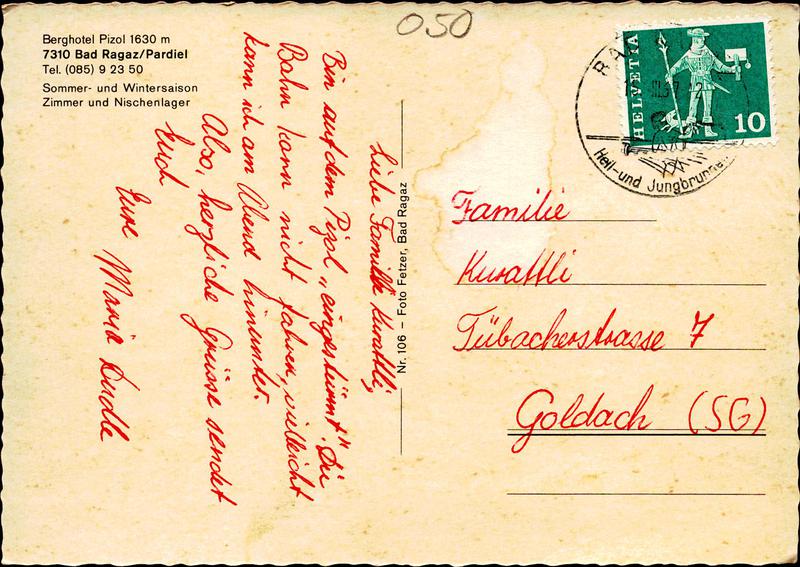 Berghotel Pizol 1630 m
7310 Bad Ragaz/Pardiel
Tel. (085) 9 23 50
Sommer- und Wintersaison
Zimmer und Nischenlager
050
HELVETIA
10
Heil- und Jungbrunnen
Liebe Familie Kurattli,
Bin auf dem Pizol „eingestürmt". Die
Bahn kann nicht fahren, vielleicht
kann ich am Abend hinunter.
Also, herzliche Grüsse sendet
Euch
Eure Maria
Nr. 106 – Foto Fetzer, Bad Ragaz
Familie
Kurattli
Tübacherstrasse 7
Goldach (SG)